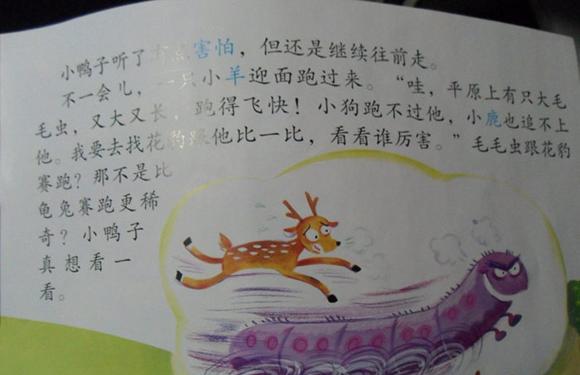 小鸭子听了有点害怕，但还是继续往前走。
不一会儿，一只小羊迎面跑过来。“哇，平原上有只大毛
毛虫，又大又长，跑得飞快！小狗跑不过他，小鹿也追不上
他。我要去找花豹跟他比一比，看看谁厉害。”毛毛虫跟花豹
赛跑？那不是比
龟兔赛跑更稀
奇？小鸭子
真想看一
看。